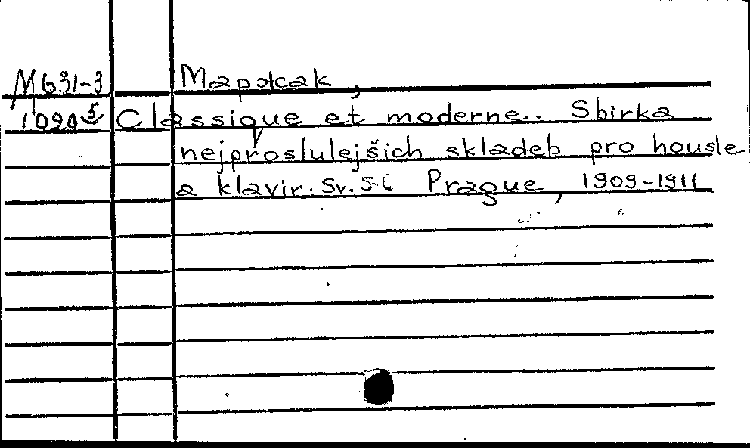 М631-3
Classique et moderne.. Sbirka
nejproslulejšich skladeb pro housle
a klavir. Sv. 5-6 Prague, 1909-1911